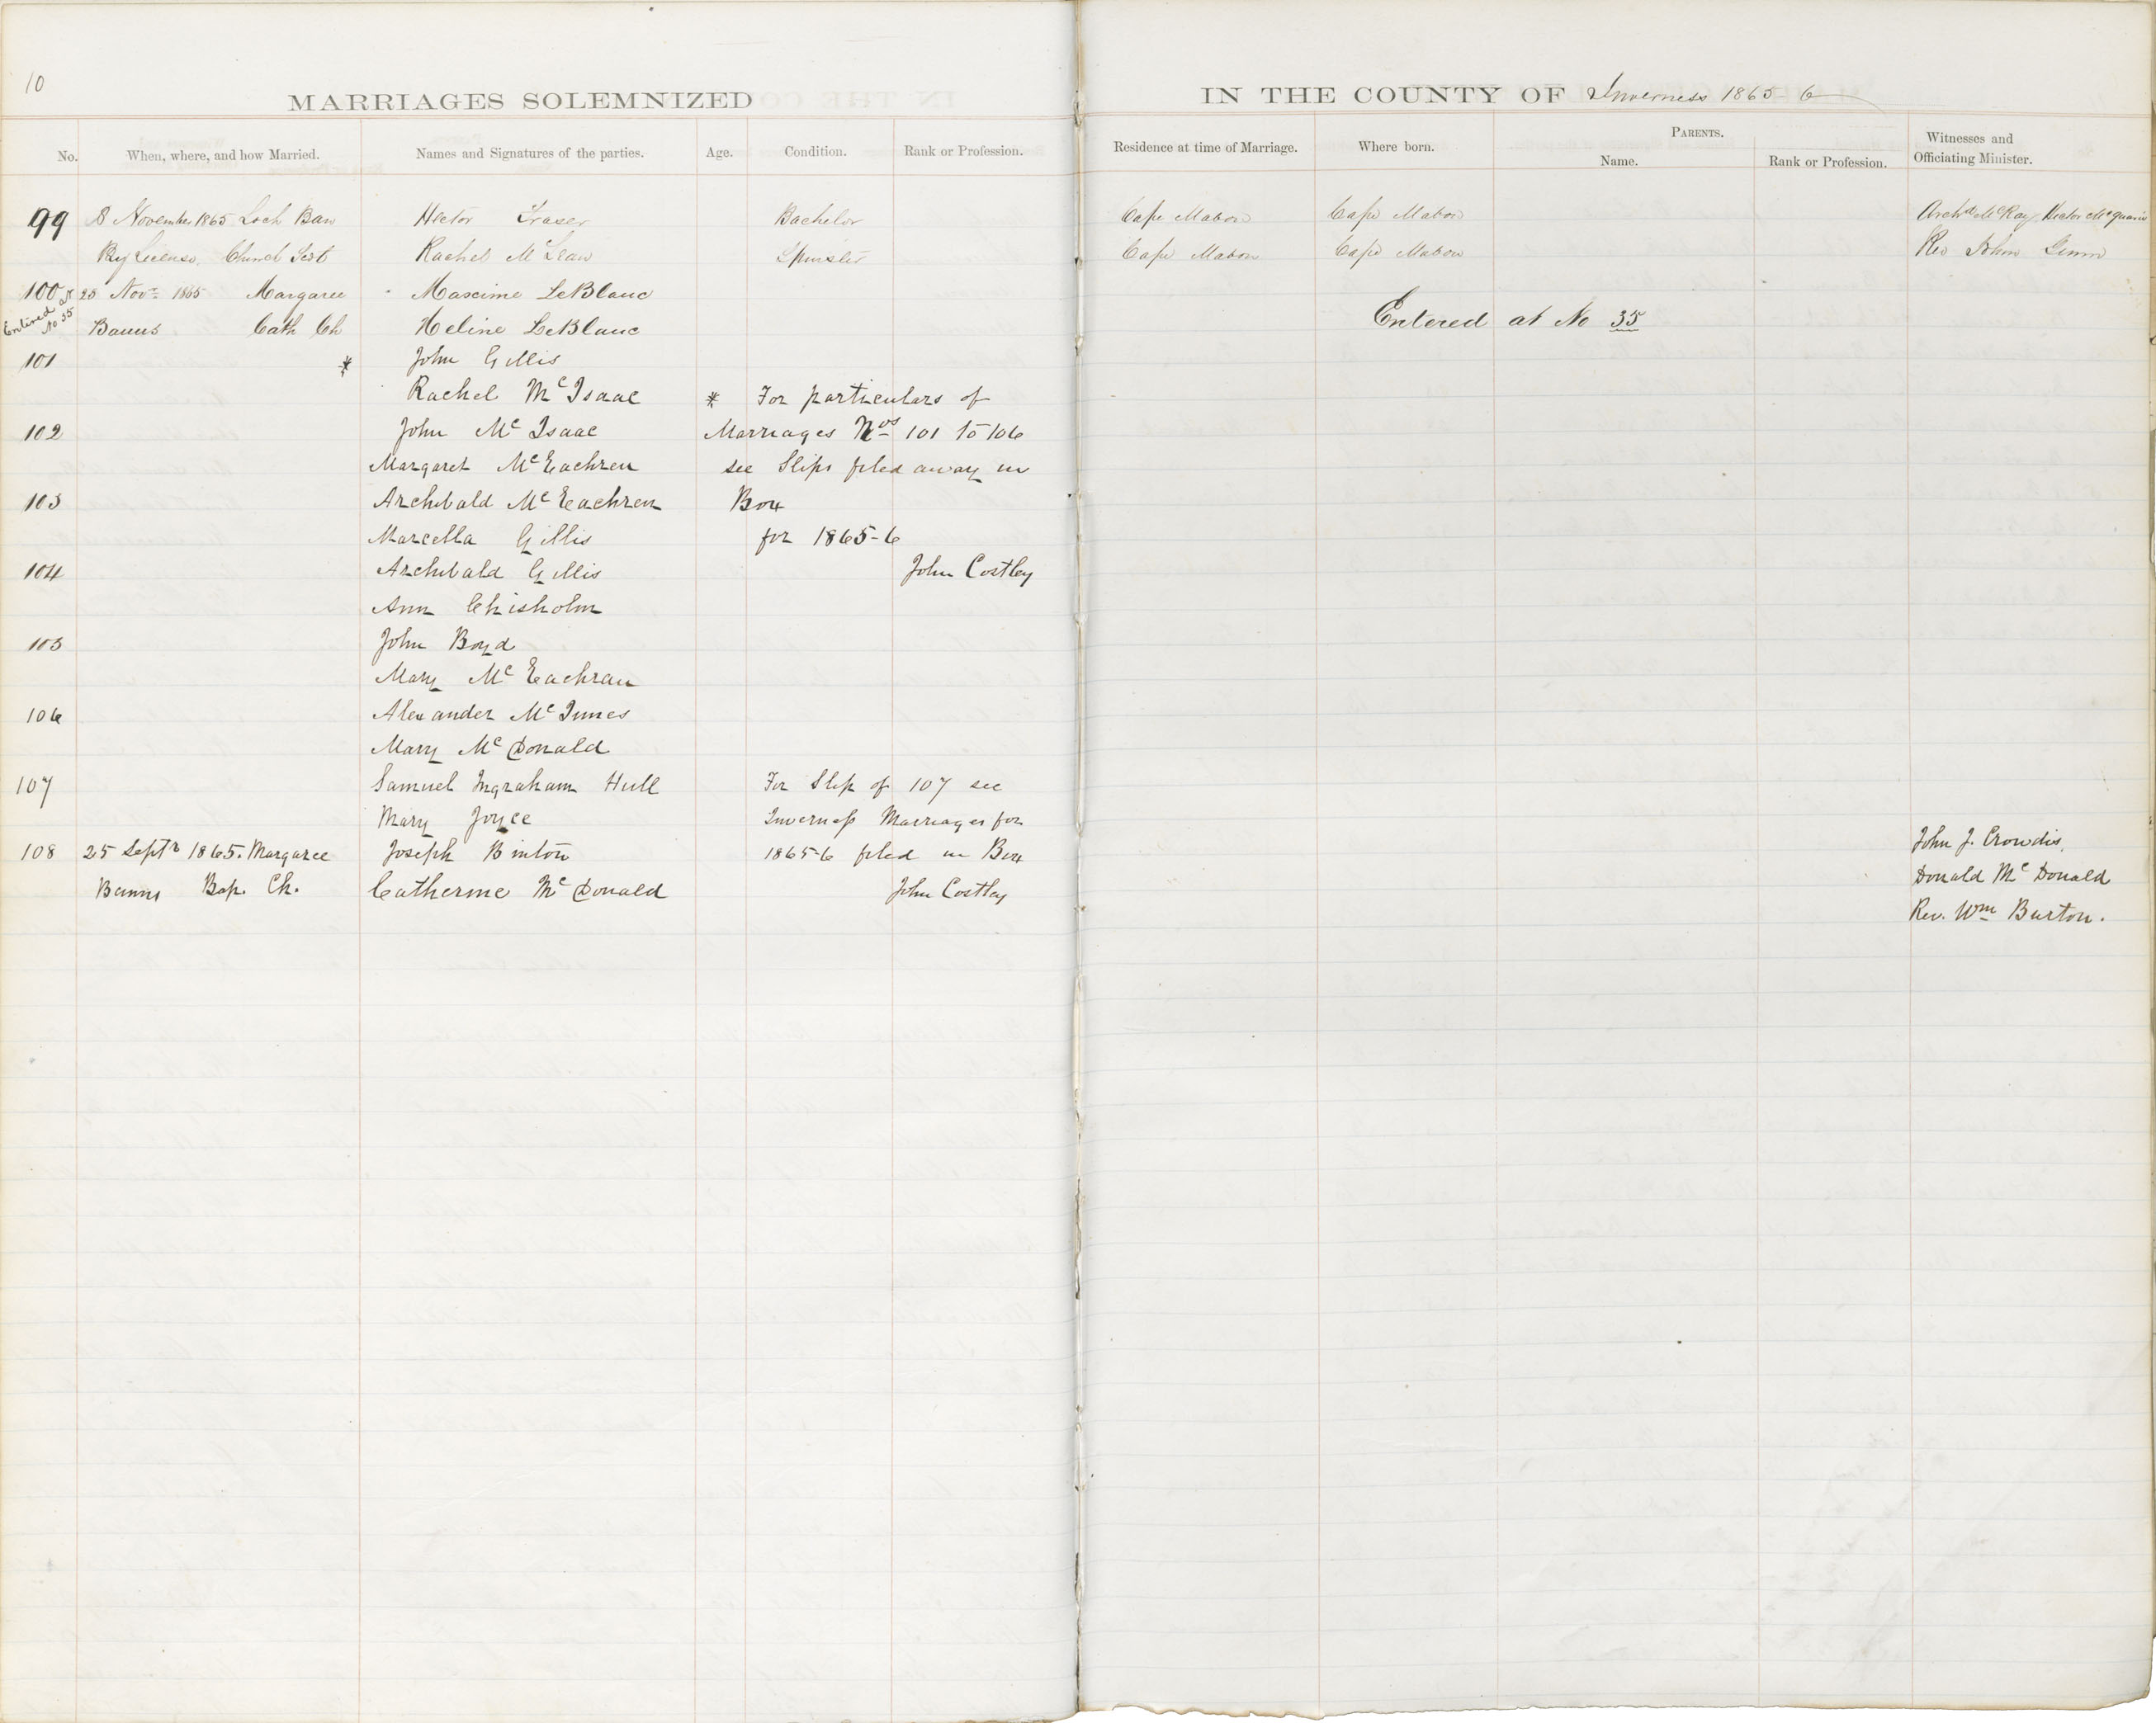 10
MARRIAGES SOLEMNIZED IN THE COUNTY OF Inverness 1865-6
No. When, where, and how Married. Names and Signatures of the parties. Age. Condition. Rank or Profession. Residence at time of Marriage. Where born. PARENTS. Name. Rank or Profession. Witnesses and Officiating Minister.
99 8 November 1865 Loch Ban Hector Fraser Bachelor Cape Mabou Cape Mabou Archd McKay Hector McQuarrie
By License, Church Scot Rachel McLean Spinster Cape Mabou Cape Mabou Rev John Gunn
100 25 Novr 1865 Margaree Maxime LeBlanc
Entered at No 35 Banns Cath Ch Heline LeBlanc Entered at No 35
101 * John Gillis
Rachel McIsaac * For particulars of
102 John McIsaac Marriages Nos 101 to 106
Margaret McEachren see Slips filed away in
103 Archibald McEachren Box
Marcella Gillis for 1865-6
104 Archibald Gillis John Costley
Ann Chisholm
105 John Boyd
Mary McEachran
106 Alexander McInnes
Mary McDonald
107 Samuel Ingraham Hull For Slip of 107 see
Mary Joyce Inverness Marriages for
108 25 Septr 1865. Margaree Joseph Binton 1865-6 filed in Box John J. Crowdis,
Banns Bap. Ch. Catherine McDonald John Costley Donald McDonald
Rev. Wm Burton.